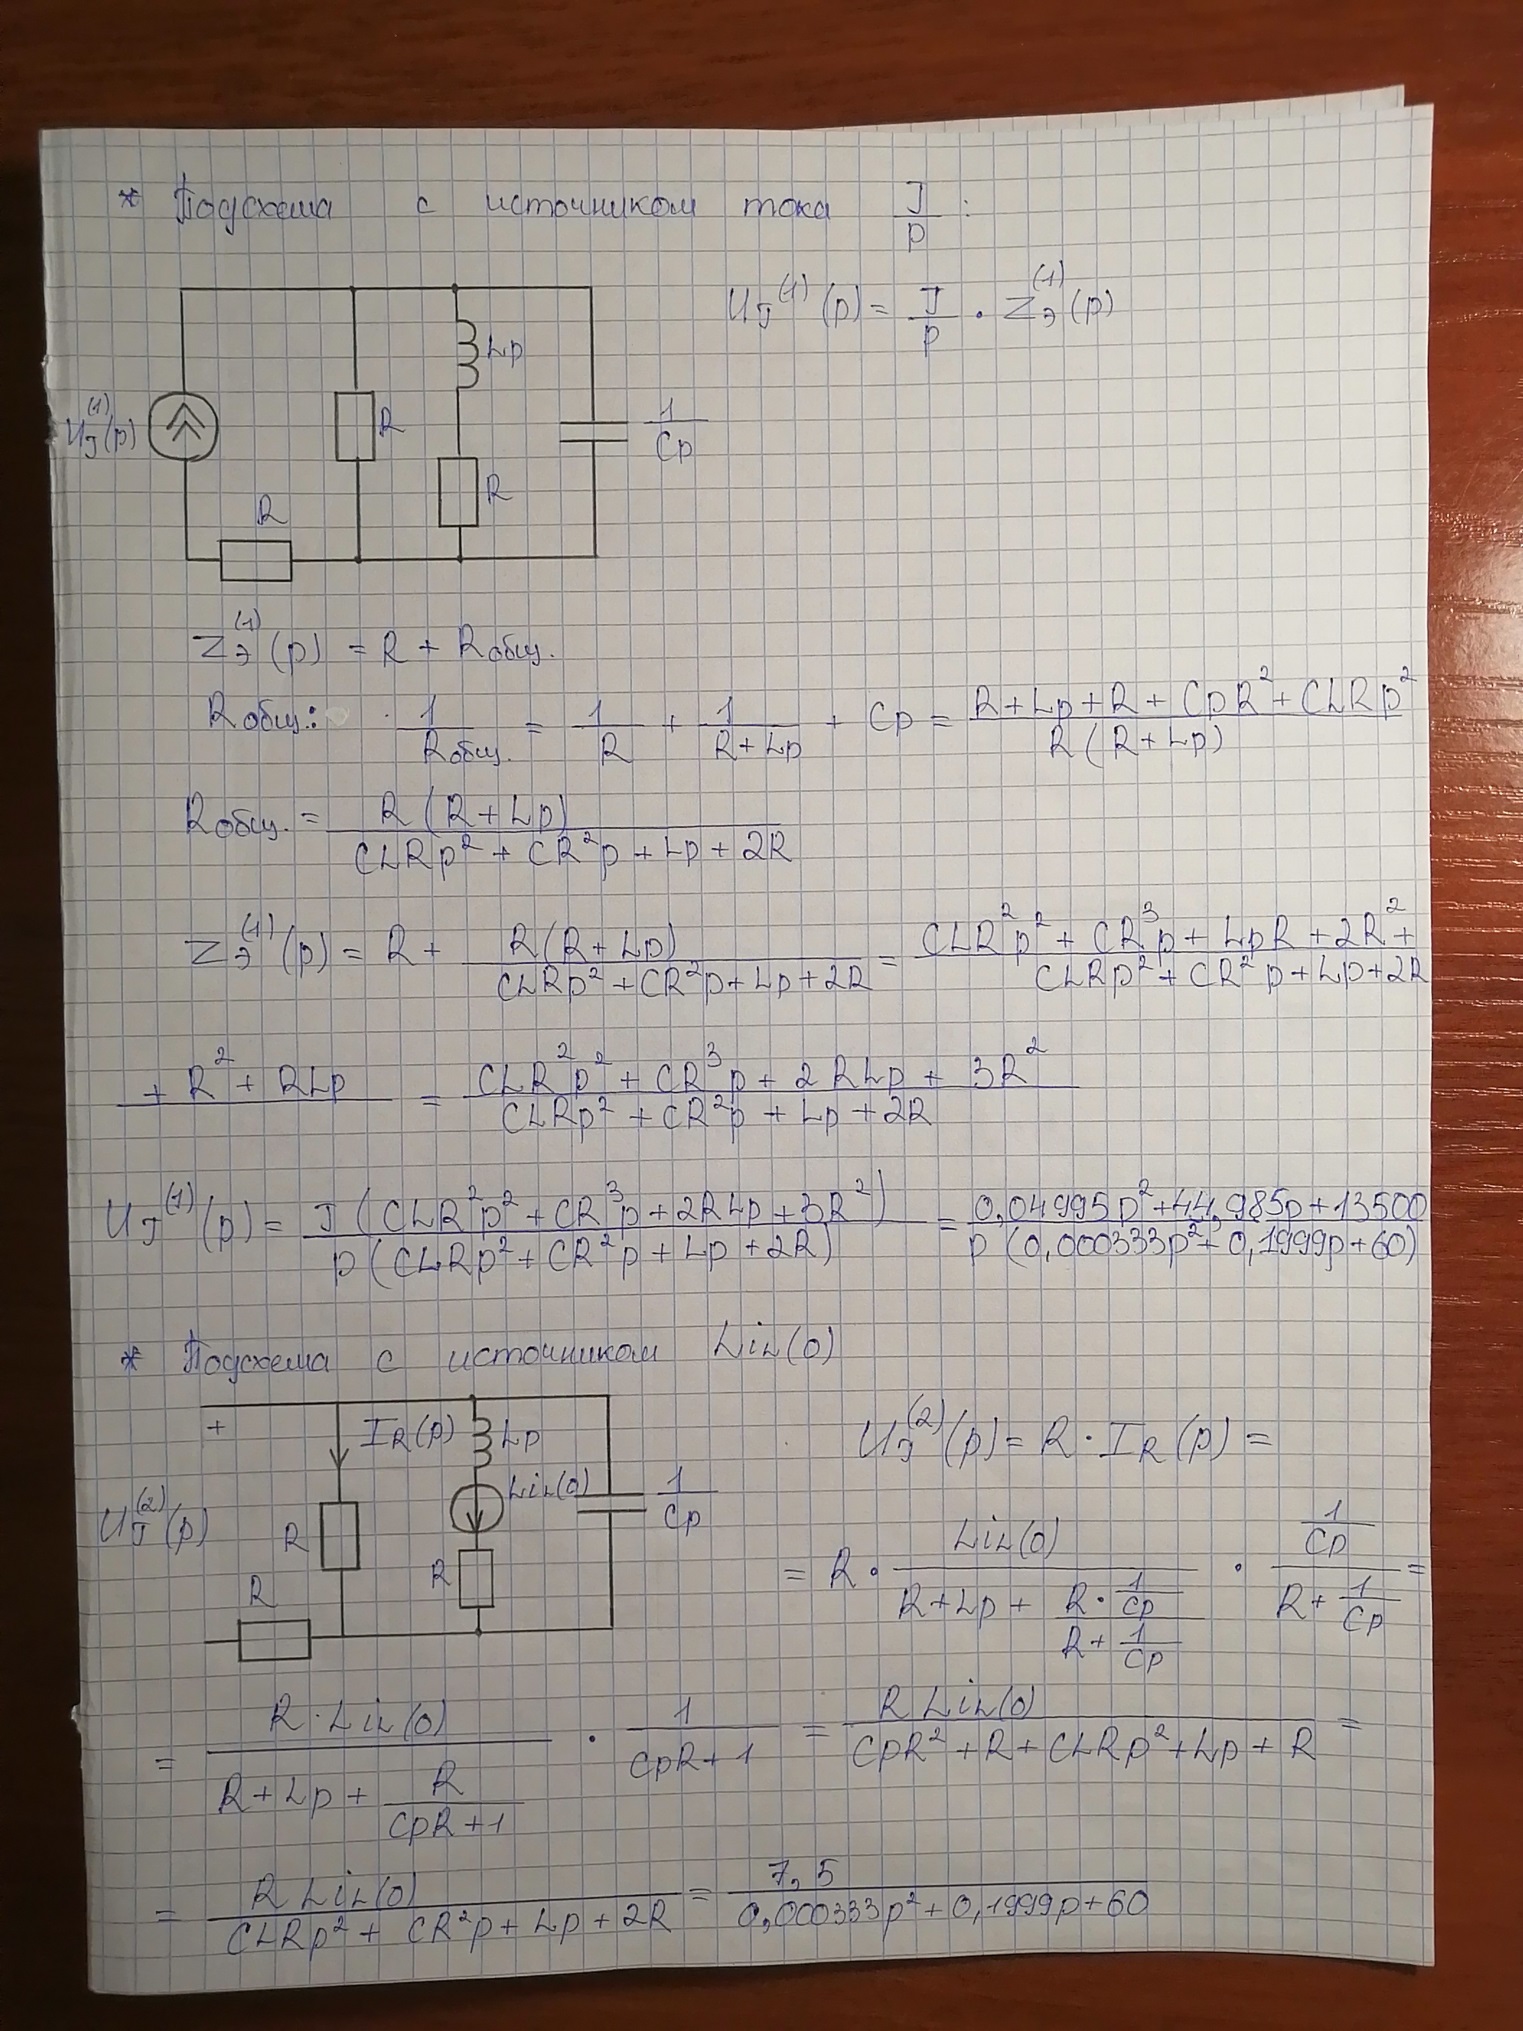 * Подсхема с источником тока J/p :
U_J^(1)(p) = J/p · Z_Э^(1)(p)
Lp
U_J^(1)(p)
R
1/Cp
R
R
Z_Э^(1)(p) = R + Rобщ.
Rобщ.: 1/Rобщ. = 1/R + 1/(R+Lp) + Cp = (R+Lp+R+CpR²+CLRp²)/(R(R+Lp))
Rобщ. = R(R+Lp)/(CLRp²+CR²p+Lp+2R)
Z_Э^(1)(p) = R + R(R+Lp)/(CLRp²+CR²p+Lp+2R) = (CLR²p²+CR³p+LpR+2R²+)/(CLRp²+CR²p+Lp+2R)
+R²+RLp = (CLR²p²+CR³p+2RLp+3R²)/(CLRp²+CR²p+Lp+2R)
U_J^(1)(p) = J(CLR²p²+CR³p+2RLp+3R²)/(p(CLRp²+CR²p+Lp+2R)) = (0,04995p²+44,985p+13500)/(p(0,000333p²+0,1999p+60))
* Подсхема с источником LiL(0)
+
I_R(p)
Lp
U_J^(2)(p) = R · I_R(p) =
LiL(0)
1/Cp
U_J^(2)(p)
R
R
R
= R · LiL(0)/(R+Lp+(R·1/Cp)/(R+1/Cp)) · (1/Cp)/(R+1/Cp) =
= R·LiL(0)/(R+Lp+R/(CpR+1)) · 1/(CpR+1) = RLiL(0)/(CpR²+R+CLRp²+Lp+R) =
= RLiL(0)/(CLRp²+CR²p+Lp+2R) = 7,5/(0,000333p²+0,1999p+60)